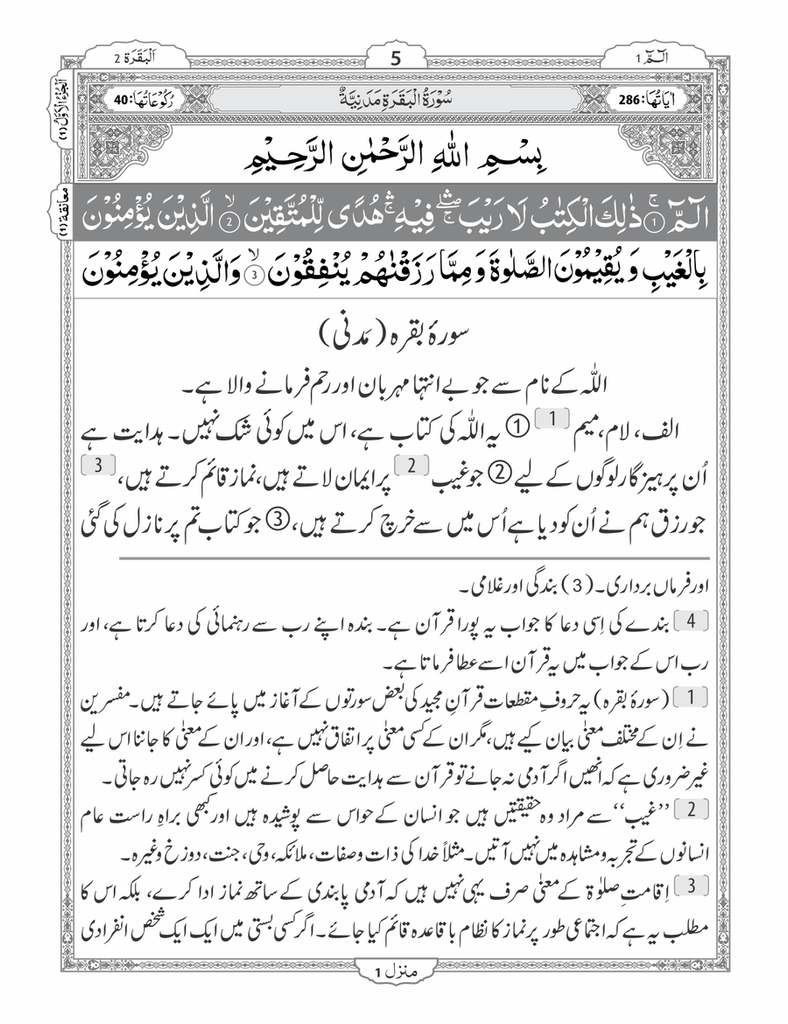 الٓمّٓ 1
5
اَلْبَقَرَة 2
اٰیَاتُهَا: 286
سُوْرَةُ الْبَقَرَةِ مَدَنِيَّةٌ
رُكُوْعَاتُهَا: 40
اَلْجُزْءُ الْاَوَّلُ (1)
معانقة (1)
بِسْمِ اللّٰهِ الرَّحْمٰنِ الرَّحِيْمِ
الٓمّٓ ۚ ① ذٰلِكَ الْكِتٰبُ لَا رَيْبَ ۛۖۚ فِيْهِ ۛۚ هُدًى لِّلْمُتَّقِيْنَ ۙ ② الَّذِيْنَ يُؤْمِنُوْنَ
بِالْغَيْبِ وَ يُقِيْمُوْنَ الصَّلٰوةَ وَ مِمَّا رَزَقْنٰهُمْ يُنْفِقُوْنَ ۙ ③ وَالَّذِيْنَ يُؤْمِنُوْنَ
سورۂ بقرہ (مَدنی)
اللّٰہ کے نام سے جو بے انتہا مہربان اور رحم فرمانے والا ہے۔
الف، لام، میم 1 ① یہ اللّٰہ کی کتاب ہے، اس میں کوئی شک نہیں۔ ہدایت ہے
اُن پرہیزگار لوگوں کے لیے ② جو غیب 2 پر ایمان لاتے ہیں، نماز قائم کرتے ہیں، 3
جو رزق ہم نے اُن کو دیا ہے اُس میں سے خرچ کرتے ہیں، ③ جو کتاب تم پر نازل کی گئی
اور فرماں برداری۔ (3) بندگی اور غلامی۔
4 بندے کی اِسی دعا کا جواب یہ پورا قرآن ہے۔ بندہ اپنے رب سے رہنمائی کی دعا کرتا ہے، اور
رب اس کے جواب میں یہ قرآن اسے عطا فرماتا ہے۔
1 (سورۂ بقرہ) یہ حروفِ مقطعات قرآنِ مجید کی بعض سورتوں کے آغاز میں پائے جاتے ہیں۔ مفسرین
نے اِن کے مختلف معنیٰ بیان کیے ہیں، مگر ان کے کسی معنیٰ پر اتفاق نہیں ہے، اور ان کے معنیٰ کا جاننا اس لیے
غیر ضروری ہے کہ انھیں اگر آدمی نہ جانے تو قرآن سے ہدایت حاصل کرنے میں کوئی کسر نہیں رہ جاتی۔
2 ’’غیب‘‘ سے مراد وہ حقیقتیں ہیں جو انسان کے حواس سے پوشیدہ ہیں اور کبھی براہِ راست عام
انسانوں کے تجربہ و مشاہدہ میں نہیں آتیں۔ مثلاً خدا کی ذات و صفات، ملائکہ، وحی، جنت، دوزخ وغیرہ۔
3 اِقامتِ صلوٰۃ کے معنیٰ صرف یہی نہیں ہیں کہ آدمی پابندی کے ساتھ نماز ادا کرے، بلکہ اس کا
مطلب یہ ہے کہ اجتماعی طور پر نماز کا نظام باقاعدہ قائم کیا جائے۔ اگر کسی بستی میں ایک ایک شخص انفرادی
منزل 1